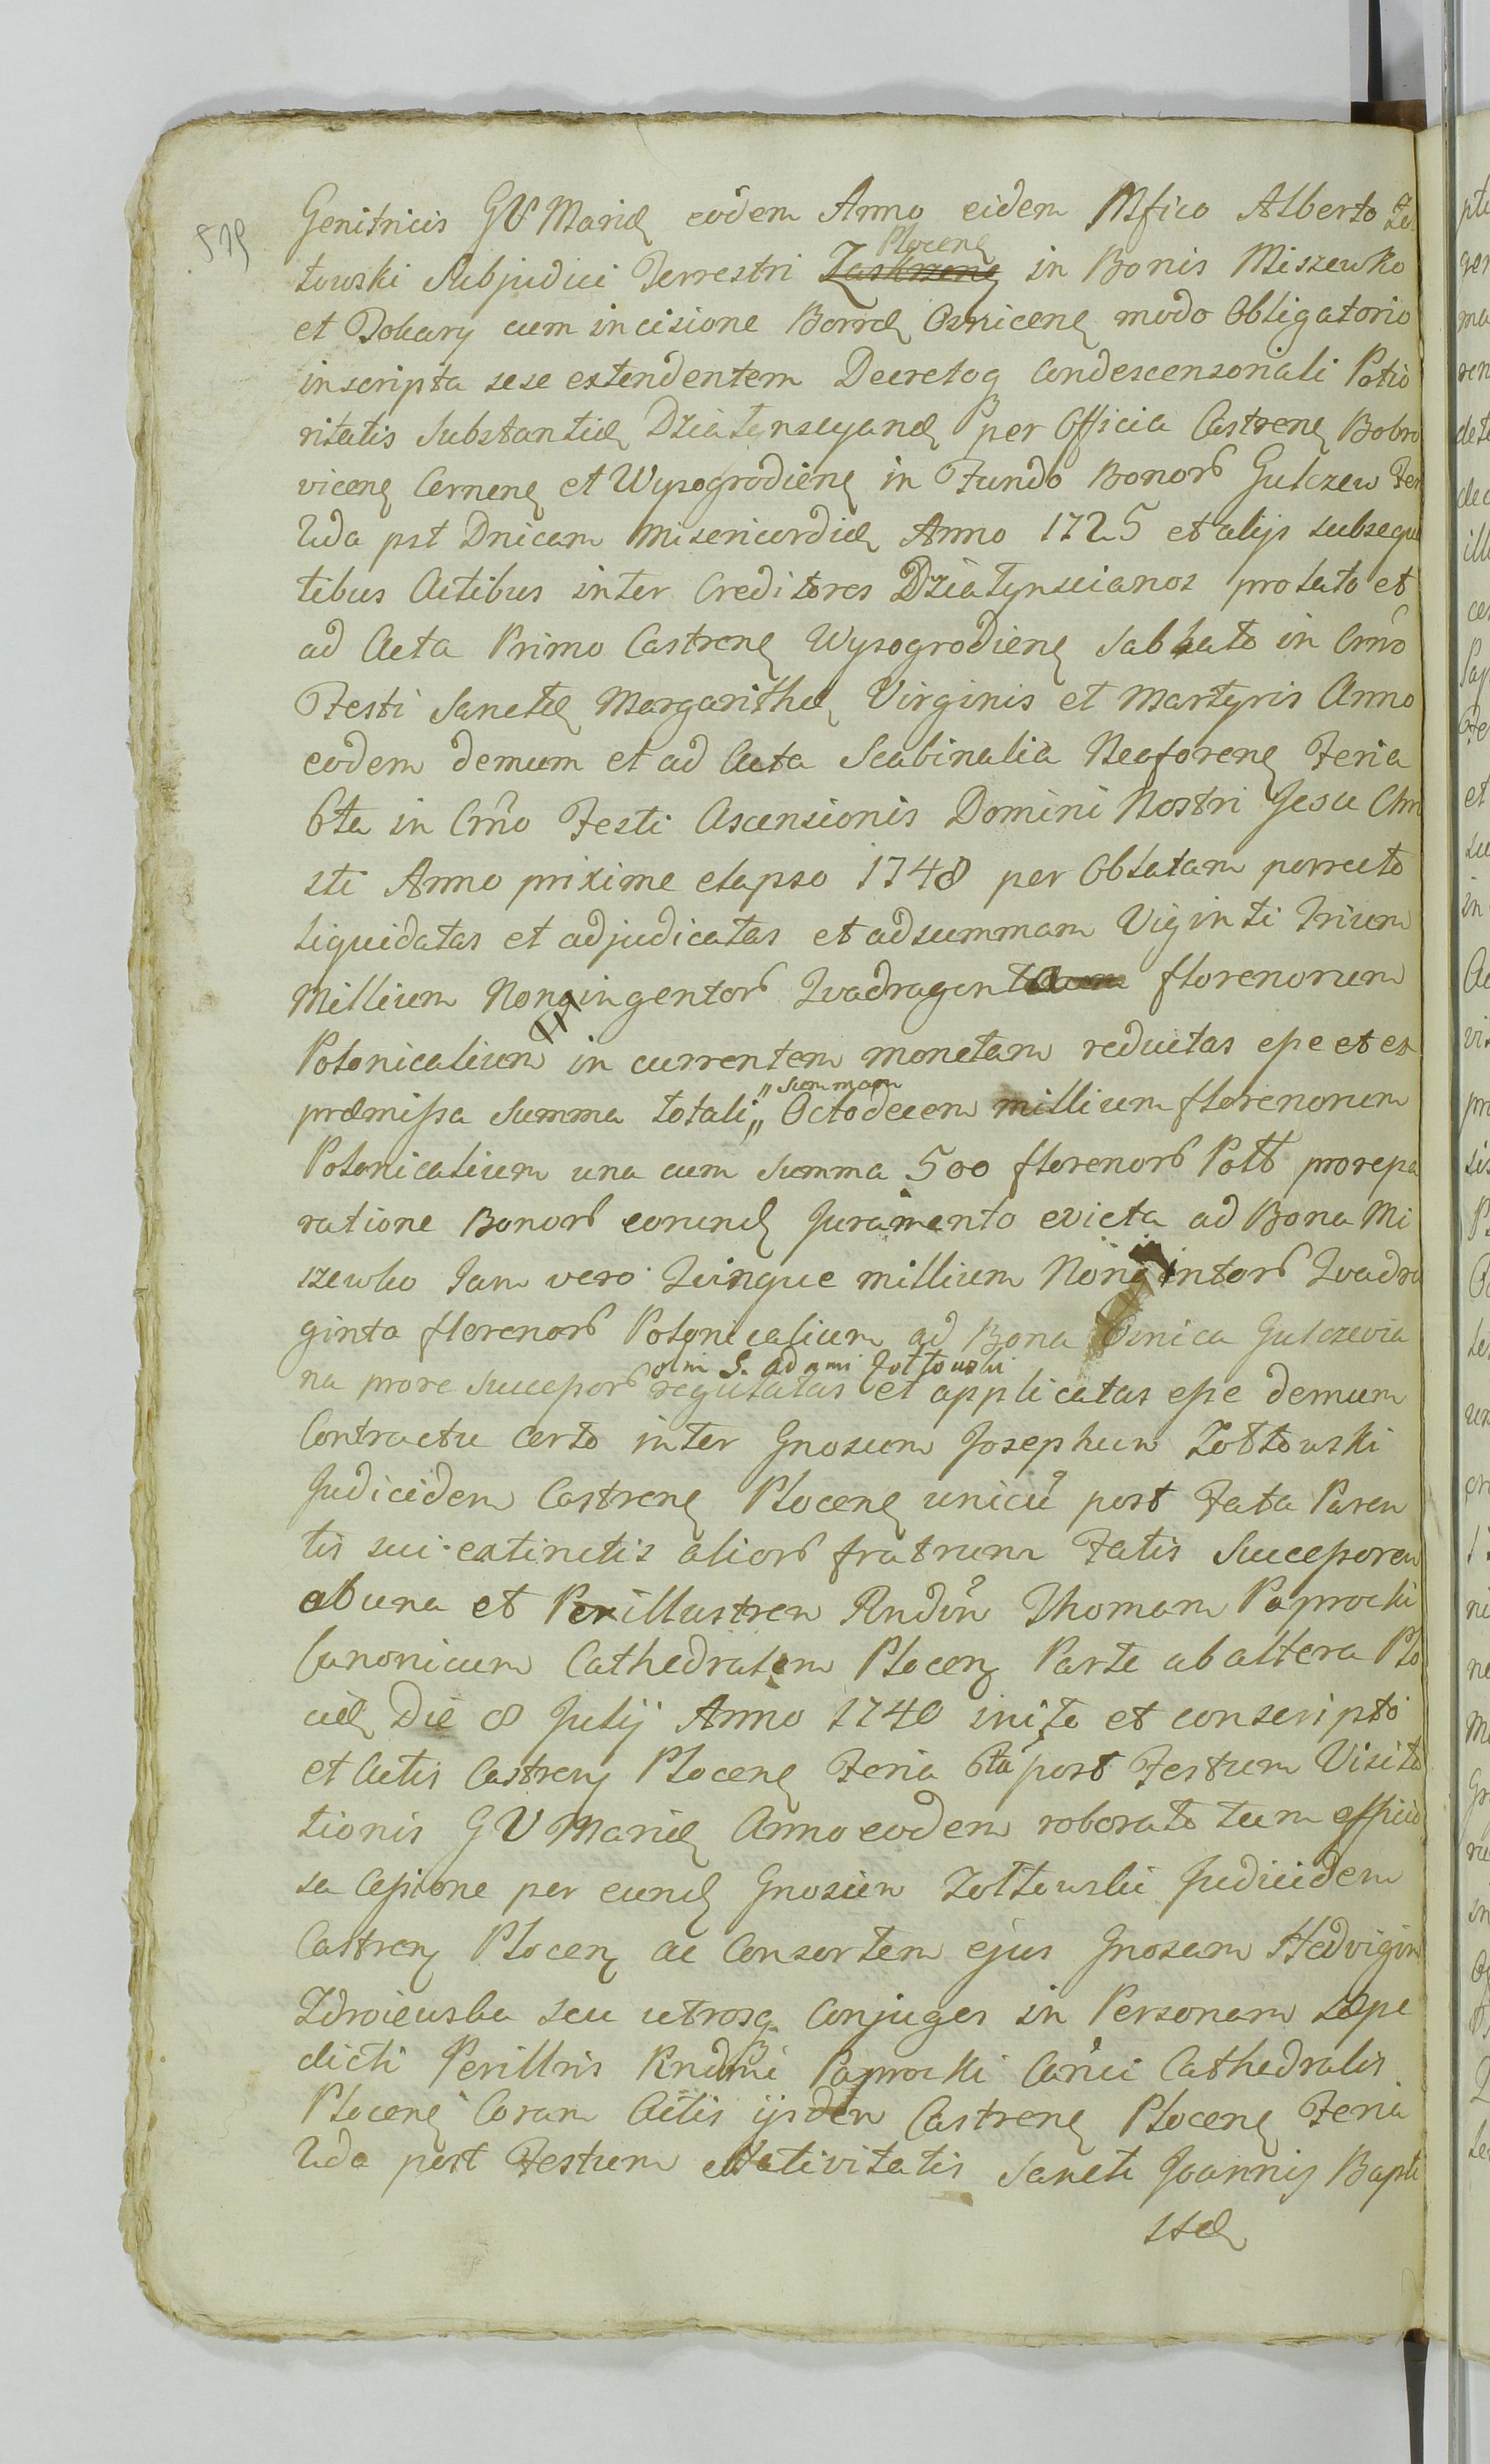 Genitricis GV Mariæ eodem Anno eidem Mfico Alberto Zo
Plocenę
towski Subjudici Terrestri Zaskrzenę in Bonis Miszewko
et Tokary cum incisione Borræ Osnicenę modo Obligatorio
inscripta sese extendentem Decretoq Condescensoriali Potio
ritatis Substantiæ Działynscyanæ per Officia Castrenę Bobro
vicenę Cernenę et Wyszogrodienę in Fundo Bonorb Gulczew Fer
IIda pst Dnicam Misericordiæ Anno 1725 et alijs subsequ
tibus Actibus inter Creditores Działynscianos prolato et
ad Acta Primo Castrenę Wysogrodienę Sabbato in Crno
Festi Sanctæ Margarithæ Virginis et Martyris Anno
eodem demum et ad Acta Scabinalia Neoforenę Feria
6ta in Crno Festi Ascensionis Domini Nostri Jesu Chri
sti Anno prixime elapso 1748 per Oblatam porrecto
liquidatas et adjudicatas et ad summam Viginti Trium
Millium Nongingentorb Quadragenta florenorum
Polonicalium in currentem monetam reductas esse et ex
summam
præmissa Summa totali,, Octodecem millium florenorum
Polonicalium una cum Summa 500 florenorb Pollb pro repa
ratione Bonorb eorundę Juramento evicta ad Bona Mi
szewko Jam vero Quinque millium Nongintorb Quadra
ginta florenorb Polonicalium ad Bona Osnica Gulczevia
olim S. Adami Zołtowski
na pro re Successorb regulatas et applicatas esse demum
Contractu certo inter Gnosum Josephum Zołtowski
Judicidem Castrenę Plocenę unicũ post Fata Paren
tis sui extinctis aliorb fratrum Fatis Successorem
ab una et Perillustrem Rndũ Thomam Paprocki
Canonicum Cathedralem Plocenę Parte ab altera Plo
ciæ Die 8 Julij Anno 1740 inito et conscripto
et Actis Castrenę Plocenę Feria 6ta post Festum Visita
tionis GV Mariæ Anno eodem roborato tum officio
sa Cessione per eundę Gnosum Zołtowski Judicidem
Castrenę Plocenę ac Consortem ejus Gnosam Hedvigim
Zdroiewska seu utrosq Conjuges in Personam sæpe
dicti Perillris Rndmi Paprocki Canci Cathedralis
Plocenę Coram Actis ijsdem Castrenę Plocenę Feria
IIda post Festum Nativitatis Sancti Joannis Bapti
stæ